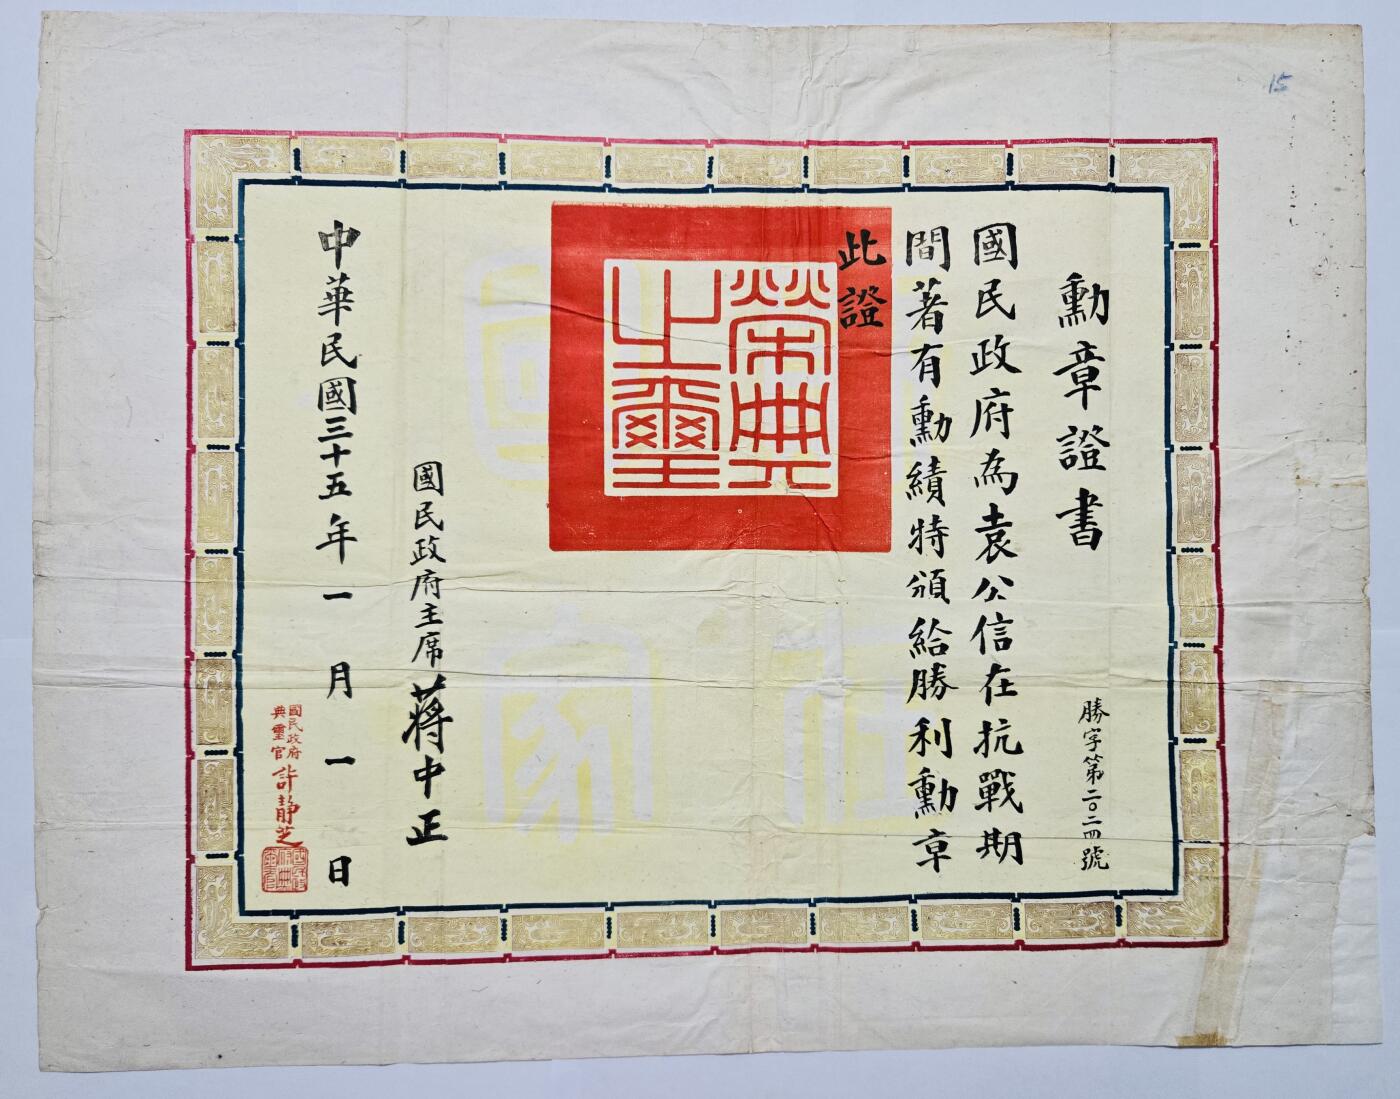 15
勳章證書
勝字第二〇二四號
國民政府為袁公信在抗戰期
間著有勳績特頒給勝利勳章
此證
榮典
之璽
國民政府主席蔣中正
中華民國三十五年一月一日
國民政府
典璽官許靜芝